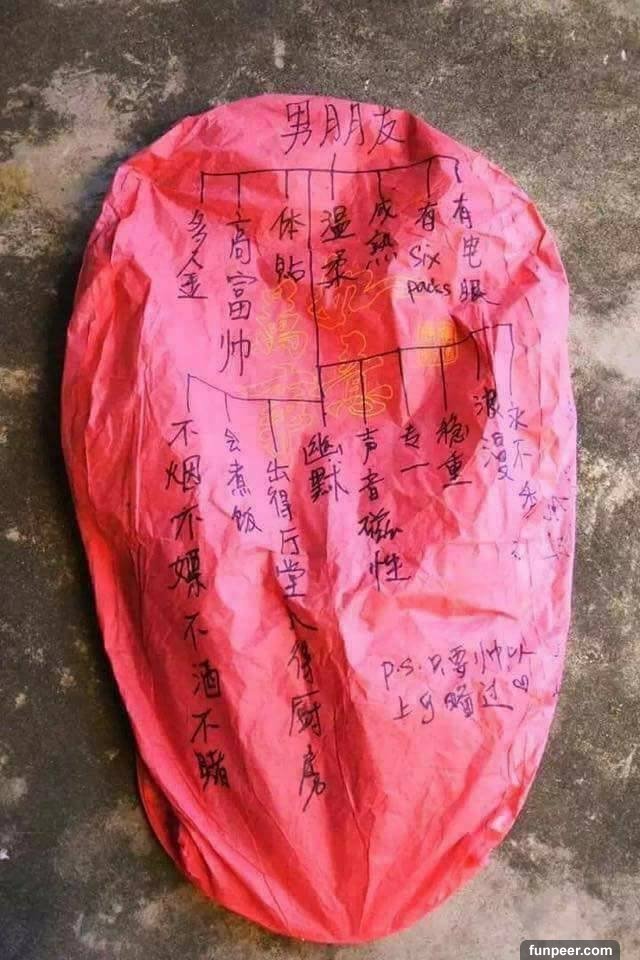 男朋友
多金
高富帅
体贴
温柔
成熟
有six packs
有电眼
不烟不嫖不酒不赌
会煮饭
出得厅堂入得厨房
幽默
声音磁性
专一
稳重
浪漫
永不
P.S. 只要帅以
上可略过♡
funpeer.com